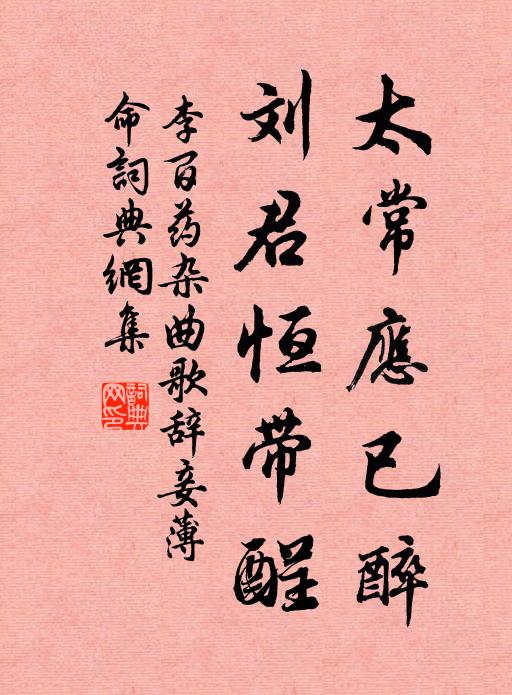 太常應已醉
刘君恒带酲
李百药杂曲歌辞妾薄
命詞典網集
詞典
网印